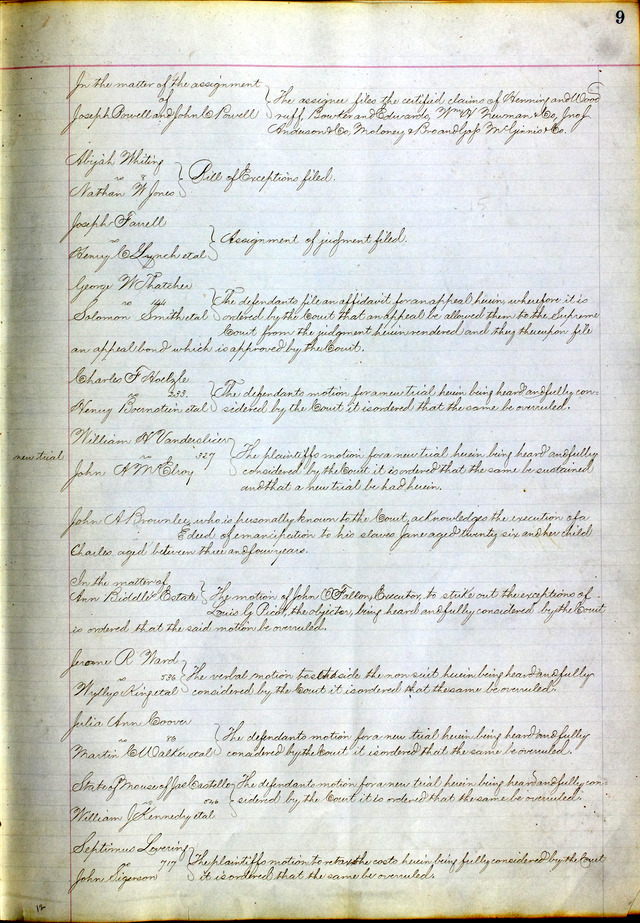 9
In the matter of the assignment
of
Joseph Powell and John C Powell
The assignee files the certified claims of Henning and Wood
ruff, Bowter and Edwards, Wm N Newman & Co, Jno J
Anderson & Co, Moloney & Bro and Jas McGinnis & Co.
Abijah Whiting
vs
Nathan W Jones
Bill of Exceptions filed.
Joseph Farrell
vs
Henry C Lynch et al
Assignment of judgment filed.
George W Thatcher
vs 144
Solomon Smith et al
The defendants file an affidavit for an appeal herein, wherefore it is
ordered by the Court that an appeal be allowed them to the Supreme
Court from the judgment herein rendered and they thereupon file
an appeal bond which is approved by the Court.
Charles F Hoelzle
vs 233
Henry Boernstein et al
The defendants motion for a new trial herein being heard and fully con-
sidered by the Court it is ordered that the same be overruled.
William N Vanderslice
new trial
vs 327
John A McElroy
The plaintiffs motion for a new trial herein being heard and fully
considered by the Court it is ordered that the same be sustained
and that a new trial be had herein.
John A Brownlee, who is personally known to the Court, acknowledges the execution of a
deed of emancipation to his slaves Jane aged twenty six and her child
Charles, aged between three and four years.
In the matter of
Ann Biddle's Estate
The motion of John O'Fallon, Executor, to strike out the exceptions of
Louis G Picot, the objector, being heard and fully considered by the Court
is ordered that the said motion be overruled.
Jerome R Ward
vs 536
Wyllys King et al
The verbal motion to set aside the non suit herein being heard and fully
considered by the Court it is ordered that the same be overruled.
Julia Ann Coover
vs 86
Martin C Walker et al
The defendants motion for a new trial herein being heard and fully
considered by the Court it is ordered that the same be overruled.
State of Mo use of Jas Castello
vs
William J Kennedy et al
The defendants motion for a new trial herein being heard and fully con-
sidered by the Court it is ordered that the same be overruled.
Septimus Lovering
vs 717
John Sigerson
The plaintiffs motion to retax the costs herein being fully considered by the Court
it is ordered that the same be overruled.
12